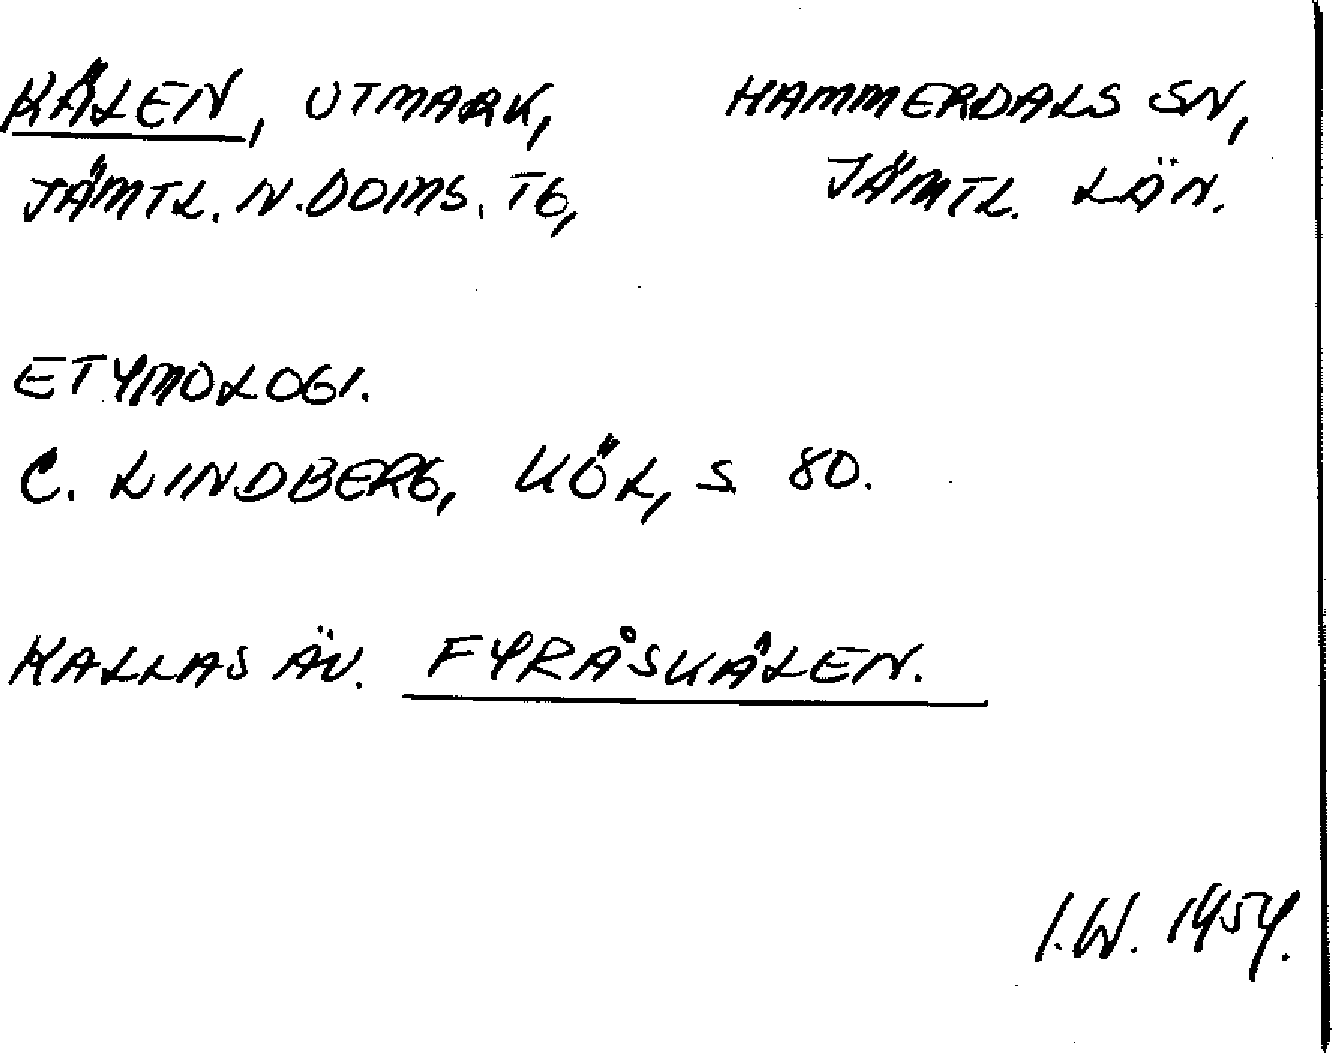 KÄLEN, UTMARK, HAMMERDALS SN,
JÄMTL. N. DOMS. TG, JÄMTL. LÄN.
ETYMOLOGI.
C. LINDBERG, KÖL, S 80.
KALLAS ÄV. FYRÅSKÄLEN.
I.W. 1954.